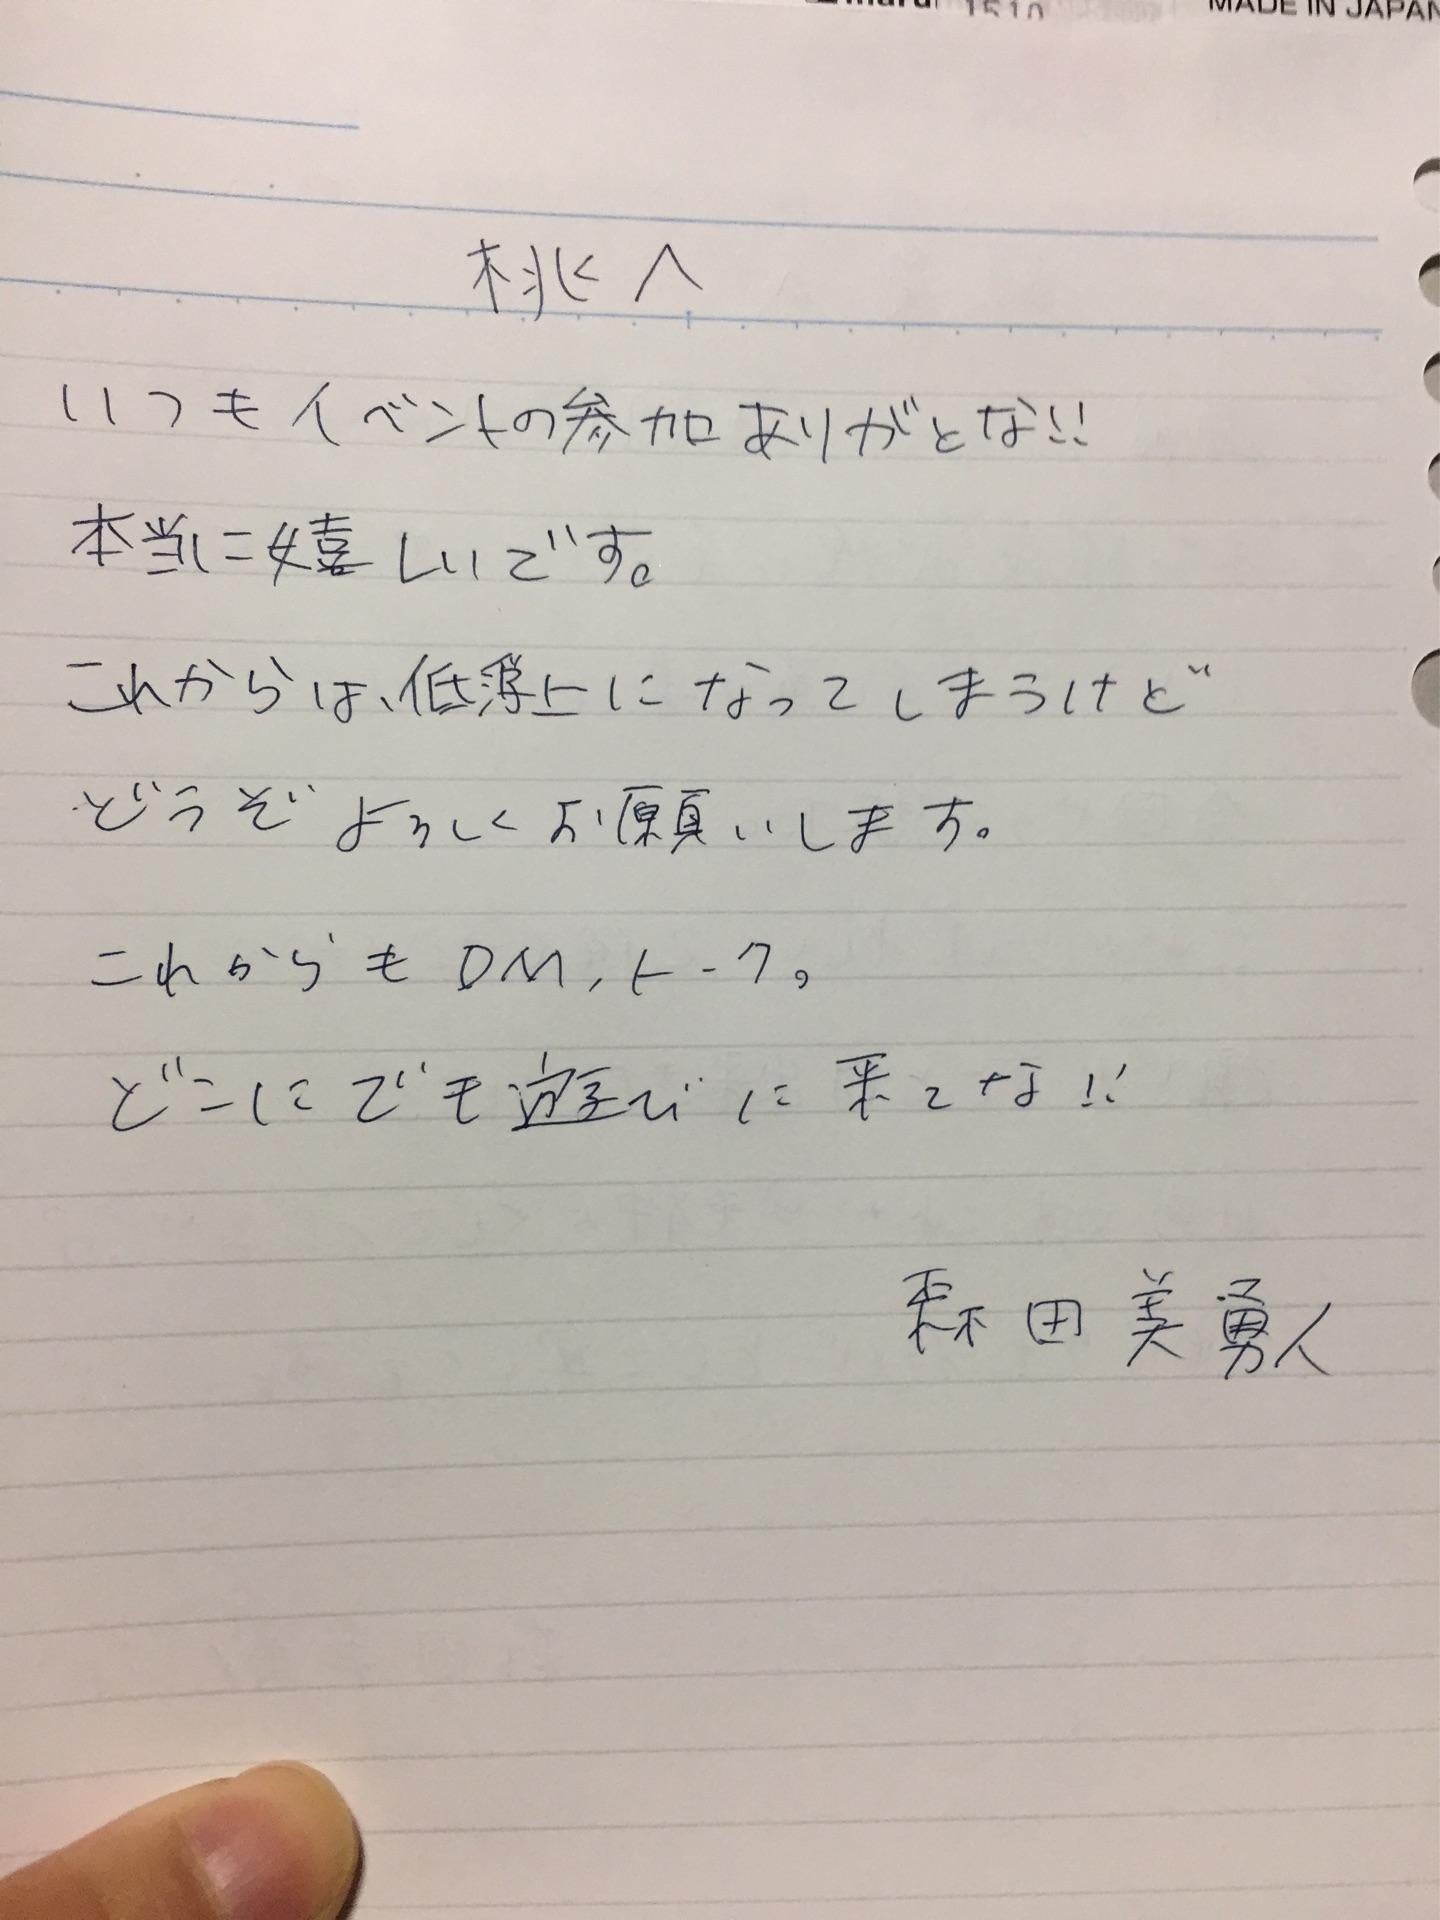 1510
MADE IN JAPAN
桃へ
いつもイベントの参加ありがとな!!
本当に嬉しいです。
これからは、低浮上になってしまうけど
どうぞよろしくお願いします。
これからもDM、トーク。
どこにでも遊びに来てな!!
森田美勇人